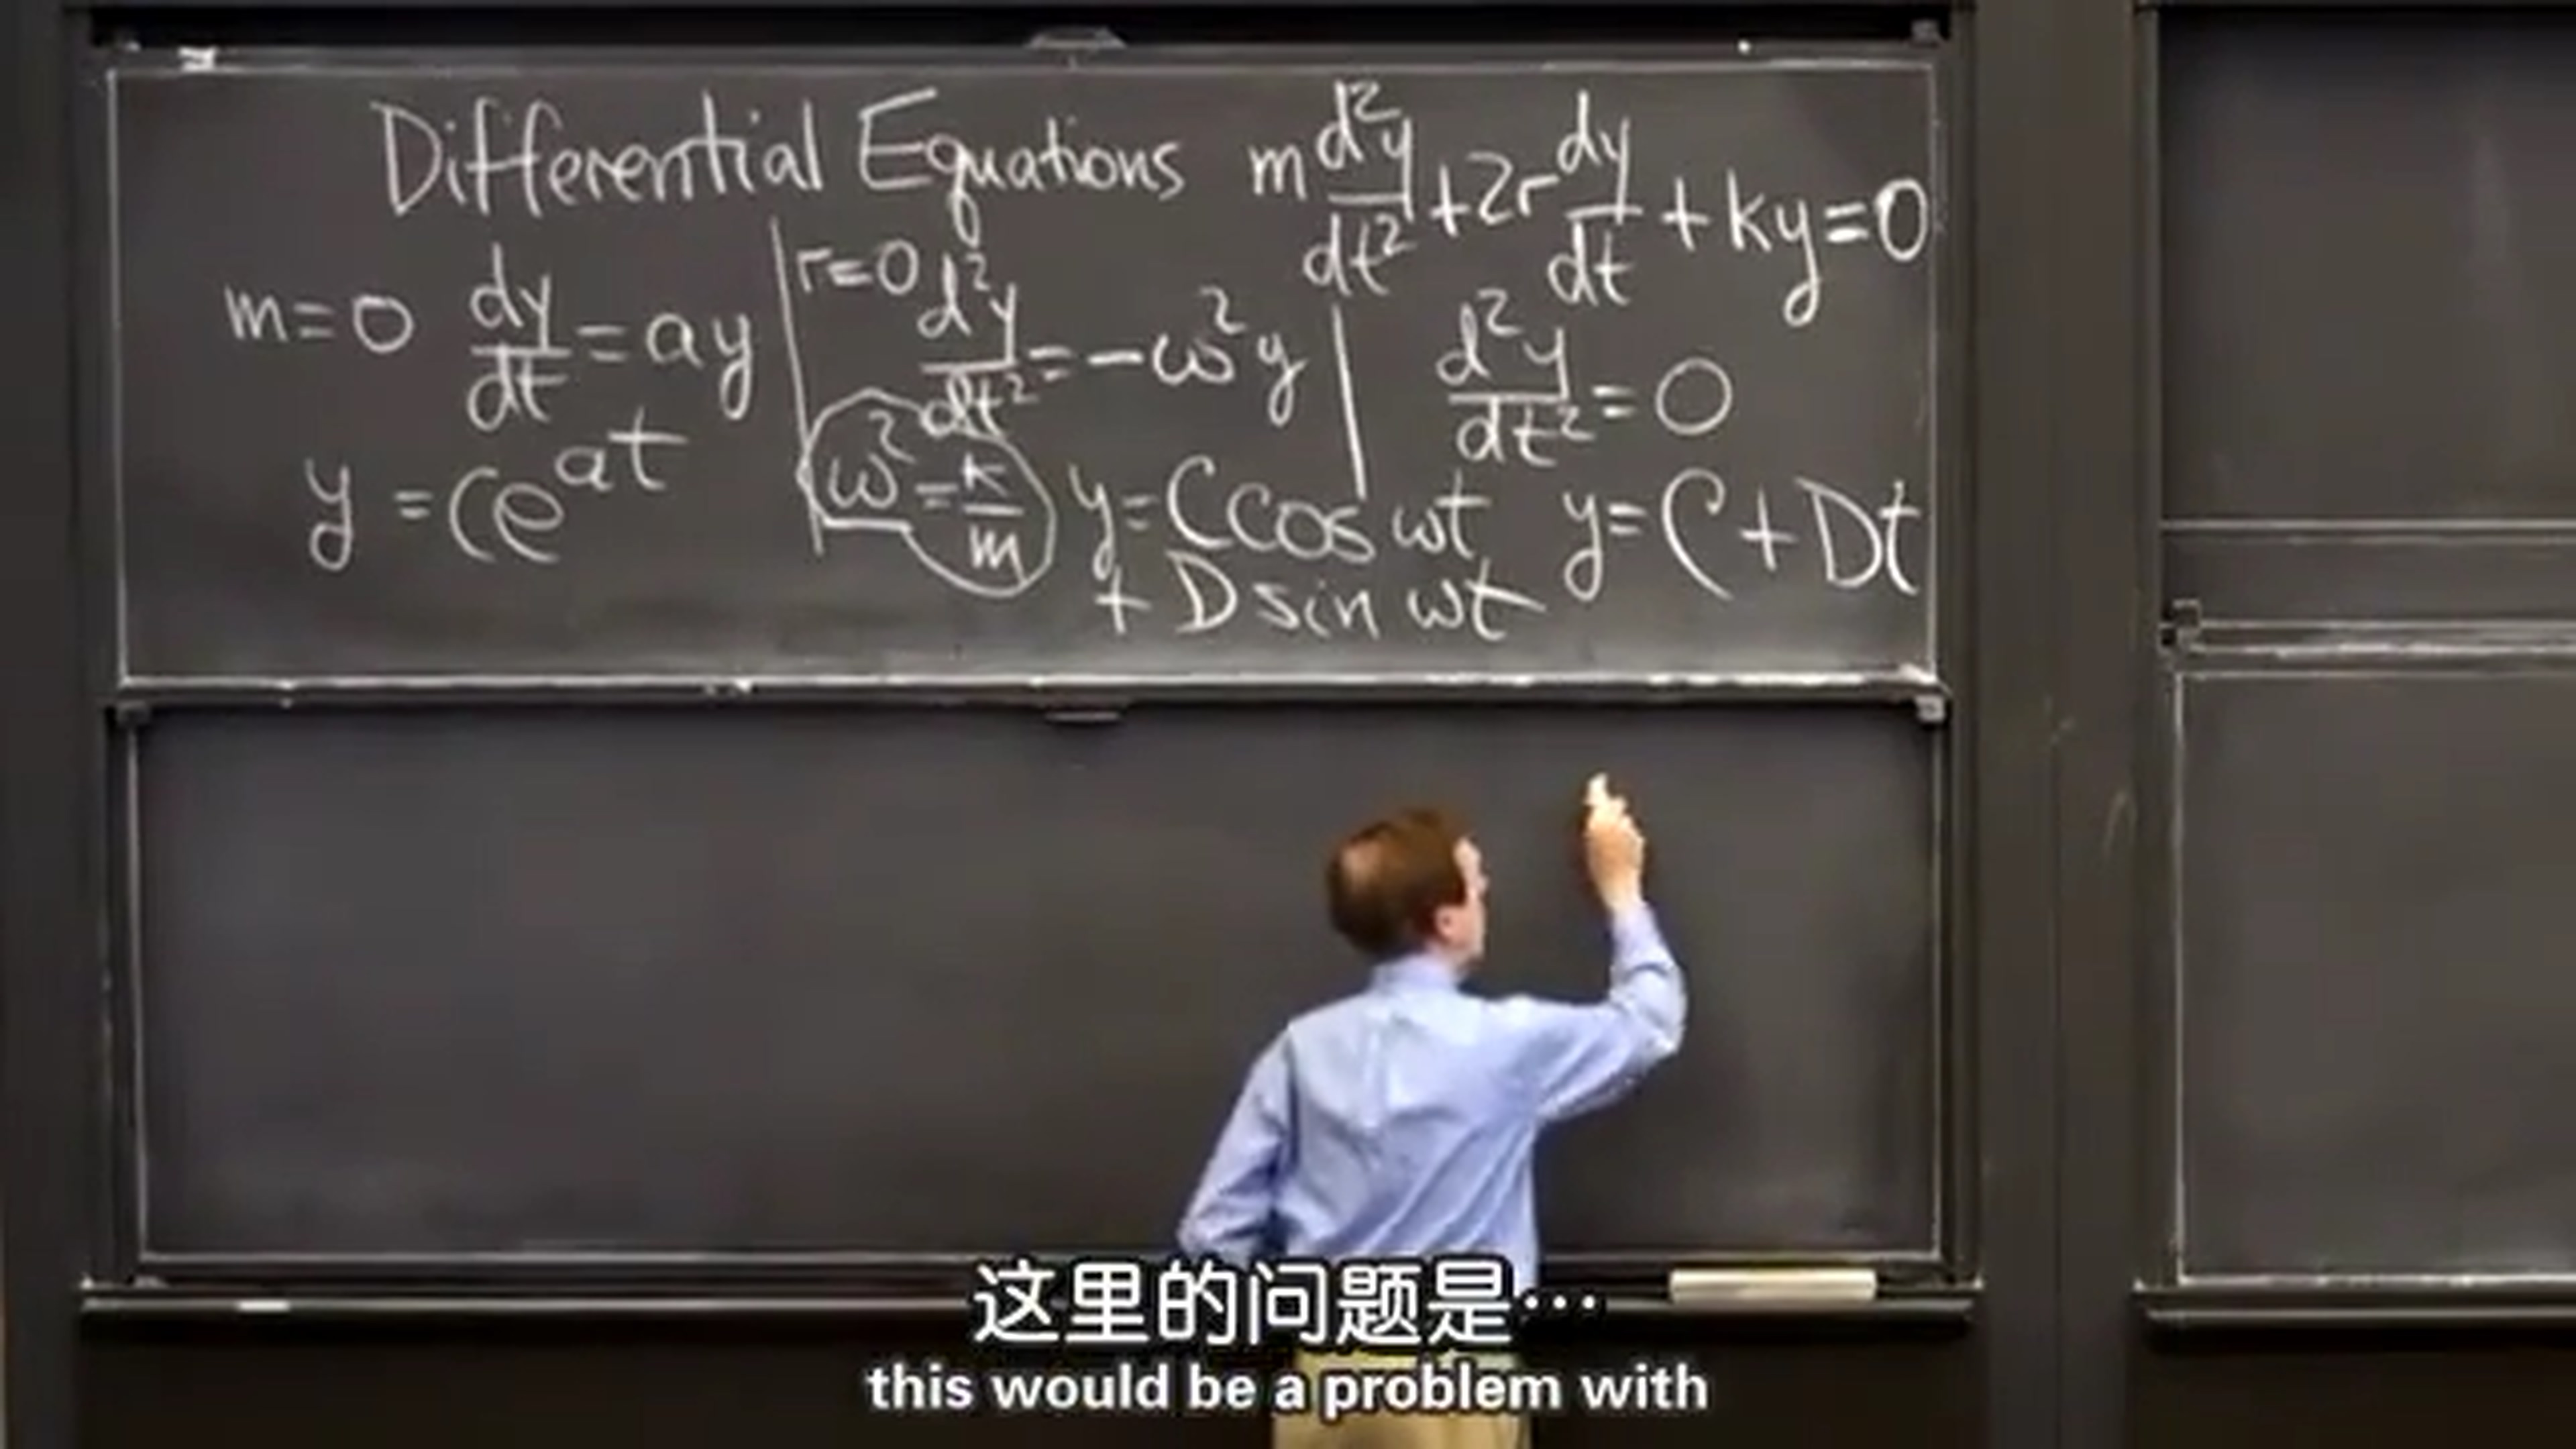 Differential Equations m d²y/dt² + 2r dy/dt + ky = 0
m = 0 dy/dt = ay
y = Ce^{at}
r = 0 d²y/dt² = -ω²y
ω² = k/m
y = C cos ωt
+ D sin ωt
d²y/dt² = 0
y = C + Dt
这里的问题是…
this would be a problem with